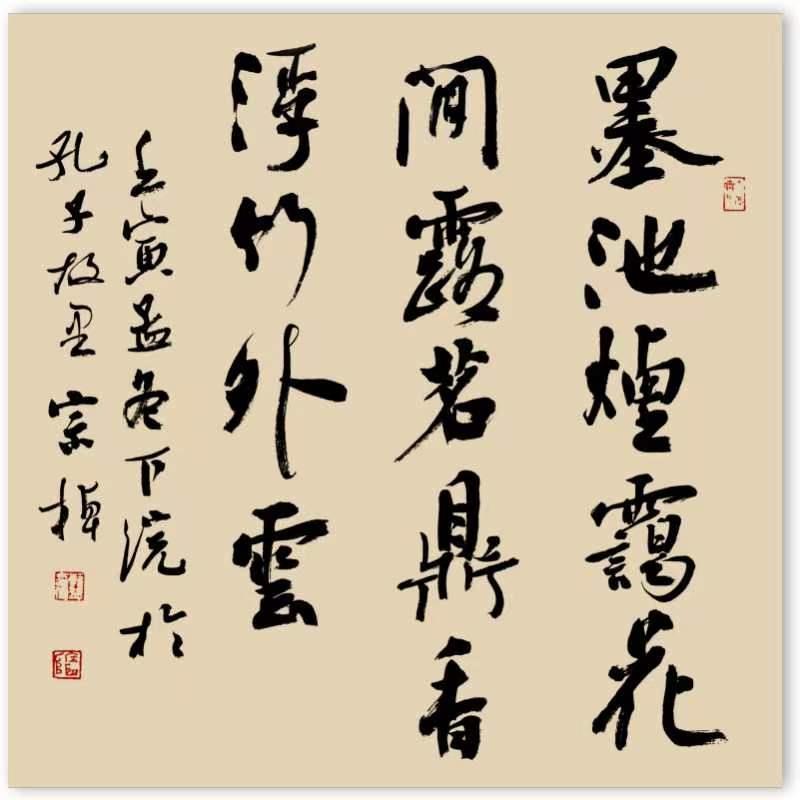 墨池煙靄花
間露茗鼎香
浮竹外雲
壬寅孟冬下浣於
孔子故里宗樟